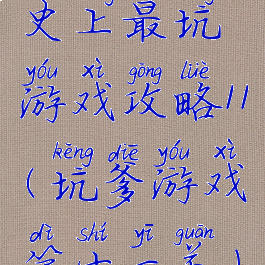 史上最坑
yóu xì gōng lüè
游戏攻略11
kēng diē yóu xì
(坑爹游戏
dì shí yī guān
第十一关)